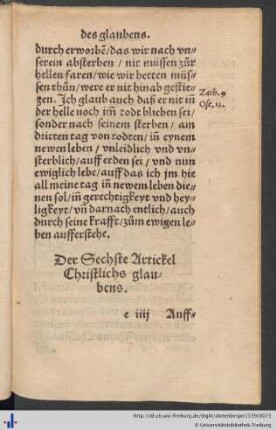 des glaubens.
durch erworbē/das wir nach vn⸗
serem absterben / nit müssen zůr
hellen faren/wie wir hetten müs⸗
sen thůn/were er nit hinab gestie⸗
gen. Ich glaub auch daß er nit in
der helle noch im̄ todt blieben sei/
sonder nach seinem sterben / am
dritten tag von todten/ in eynem
newen leben / vnleidlich vnd vn⸗
sterblich/auff erden sei / vnd nun
ewiglich lebe/auff das ich jm hie
all meine tag in newem leben die⸗
nen sol/in gerechtigkeyt vnd hey⸗
ligkeyt/vn̄ darnach entlich/auch
durch seine krafft/zům ewigen le⸗
ben aufferstehe.
Zach. 9
Ose. 13.
Der Sechste Artickel
Christlichs glau⸗
bens.
e iiij Auff⸗
http://dl.ub.uni-freiburg.de/diglit/dietenberger1539/0073
© Universitätsbibliothek Freiburg